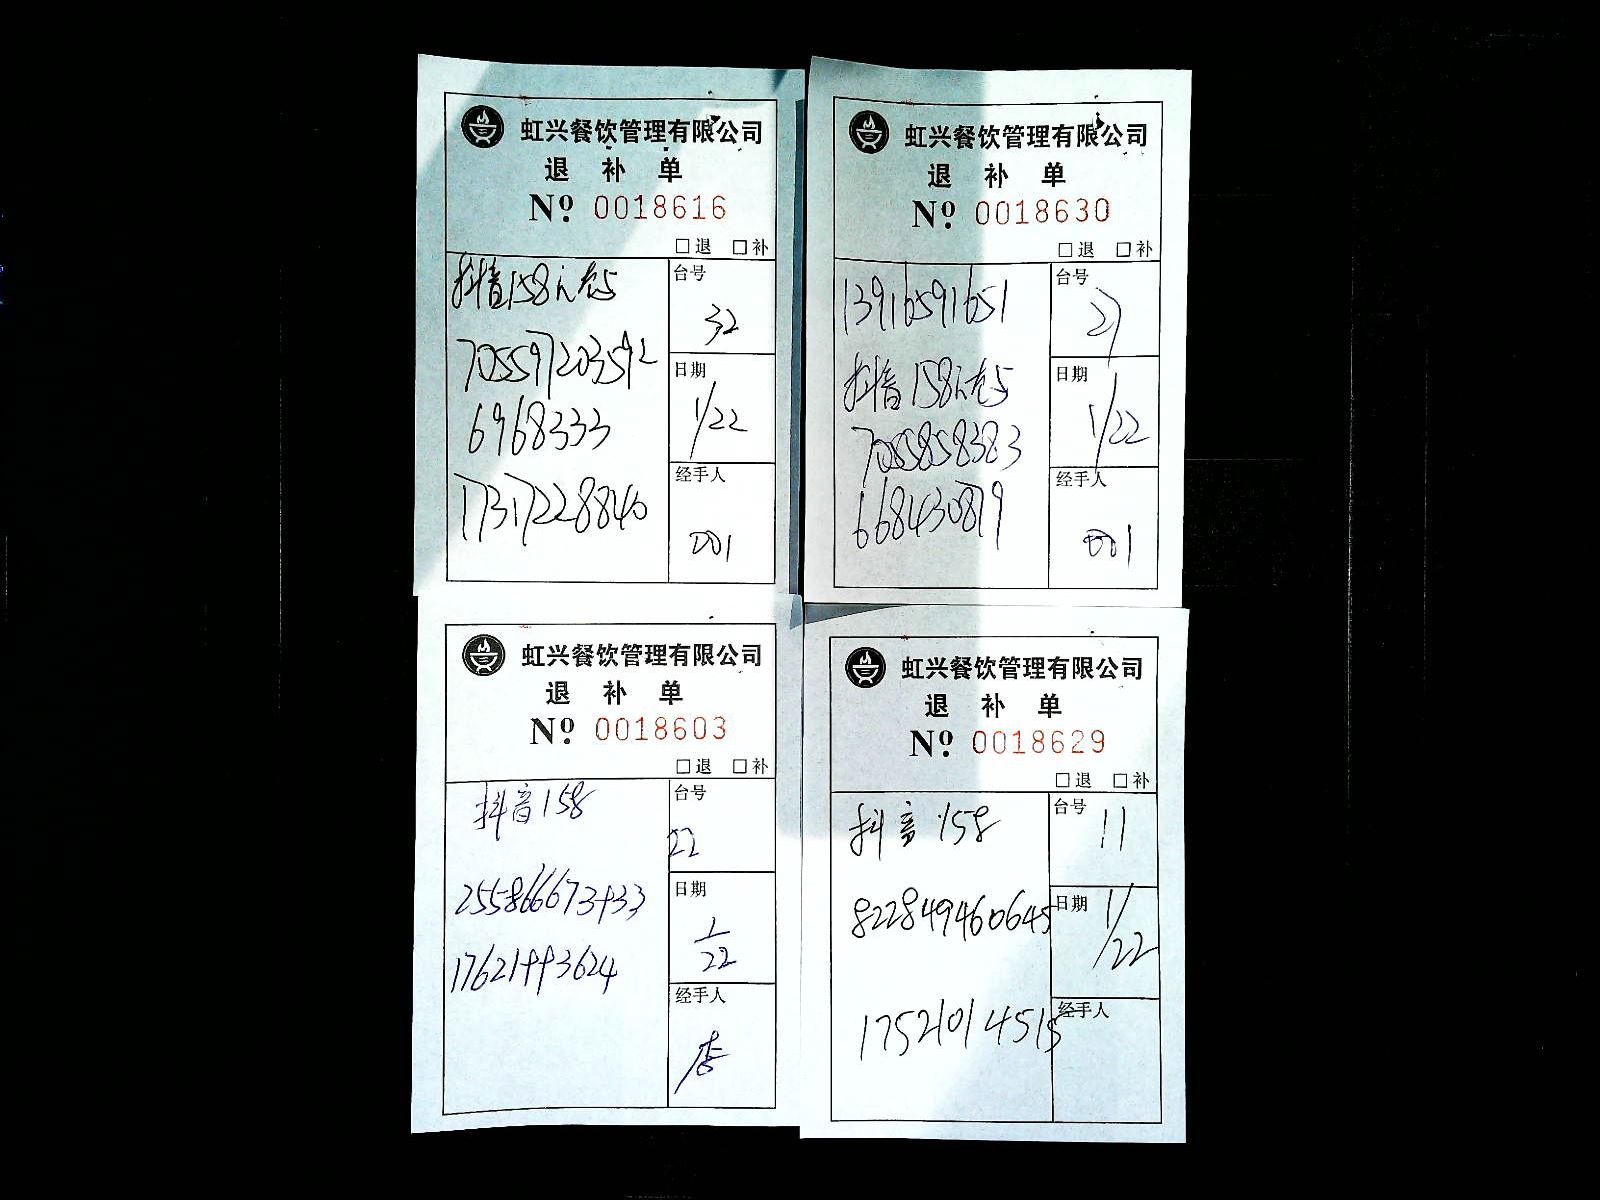 虹兴餐饮管理有限公司
退 补 单
Nº 0018616
□退 □补
抖音158元
台号
32
70559720359 2
6968333
日期
1/22
17317228840
经手人
001
虹兴餐饮管理有限公司
退 补 单
Nº 0018630
□退 □补
13916591651
台号
27
抖音158元
7055858383
668430879
日期
1/22
经手人
001
虹兴餐饮管理有限公司
退 补 单
Nº 0018603
□退 □补
抖音158
台号
22
日期
1/22
经手人
虹兴餐饮管理有限公司
退 补 单
Nº 0018629
□退 □补
抖音158
台号
11
822849460645
日期
1/22
17521014515
经手人